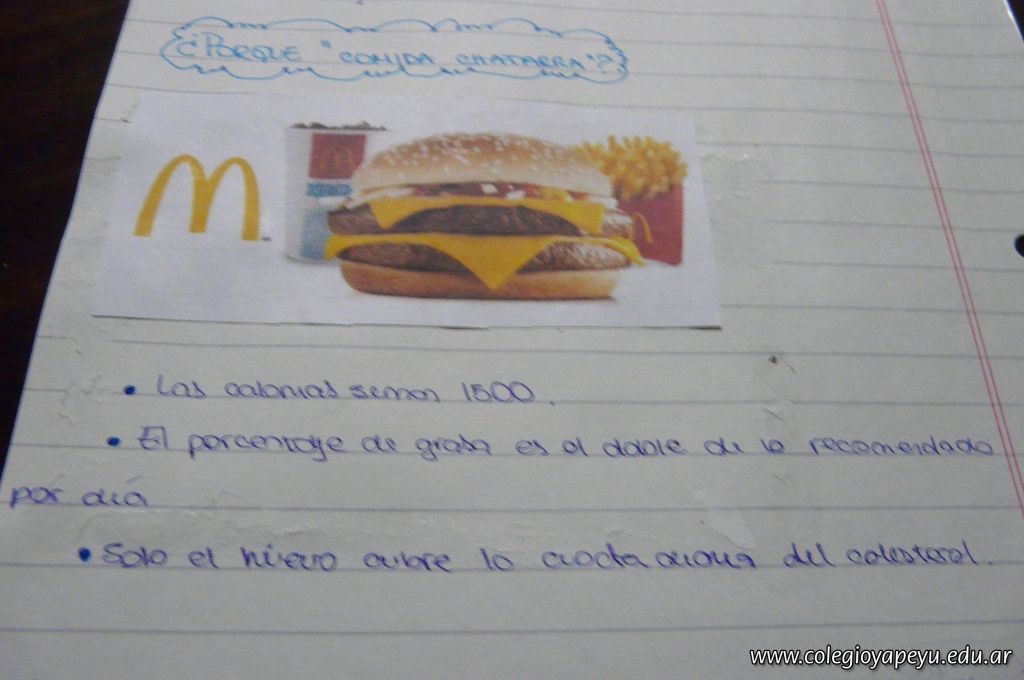 ¿Porque "comida chatarra"?
M
• Las calorias seran 1500.
• El porcentaje de grasa es el doble de lo recomendado
por dia
• Solo el huevo cubre la cuota diaria del colesterol.
www.colegioyapeyu.edu.ar